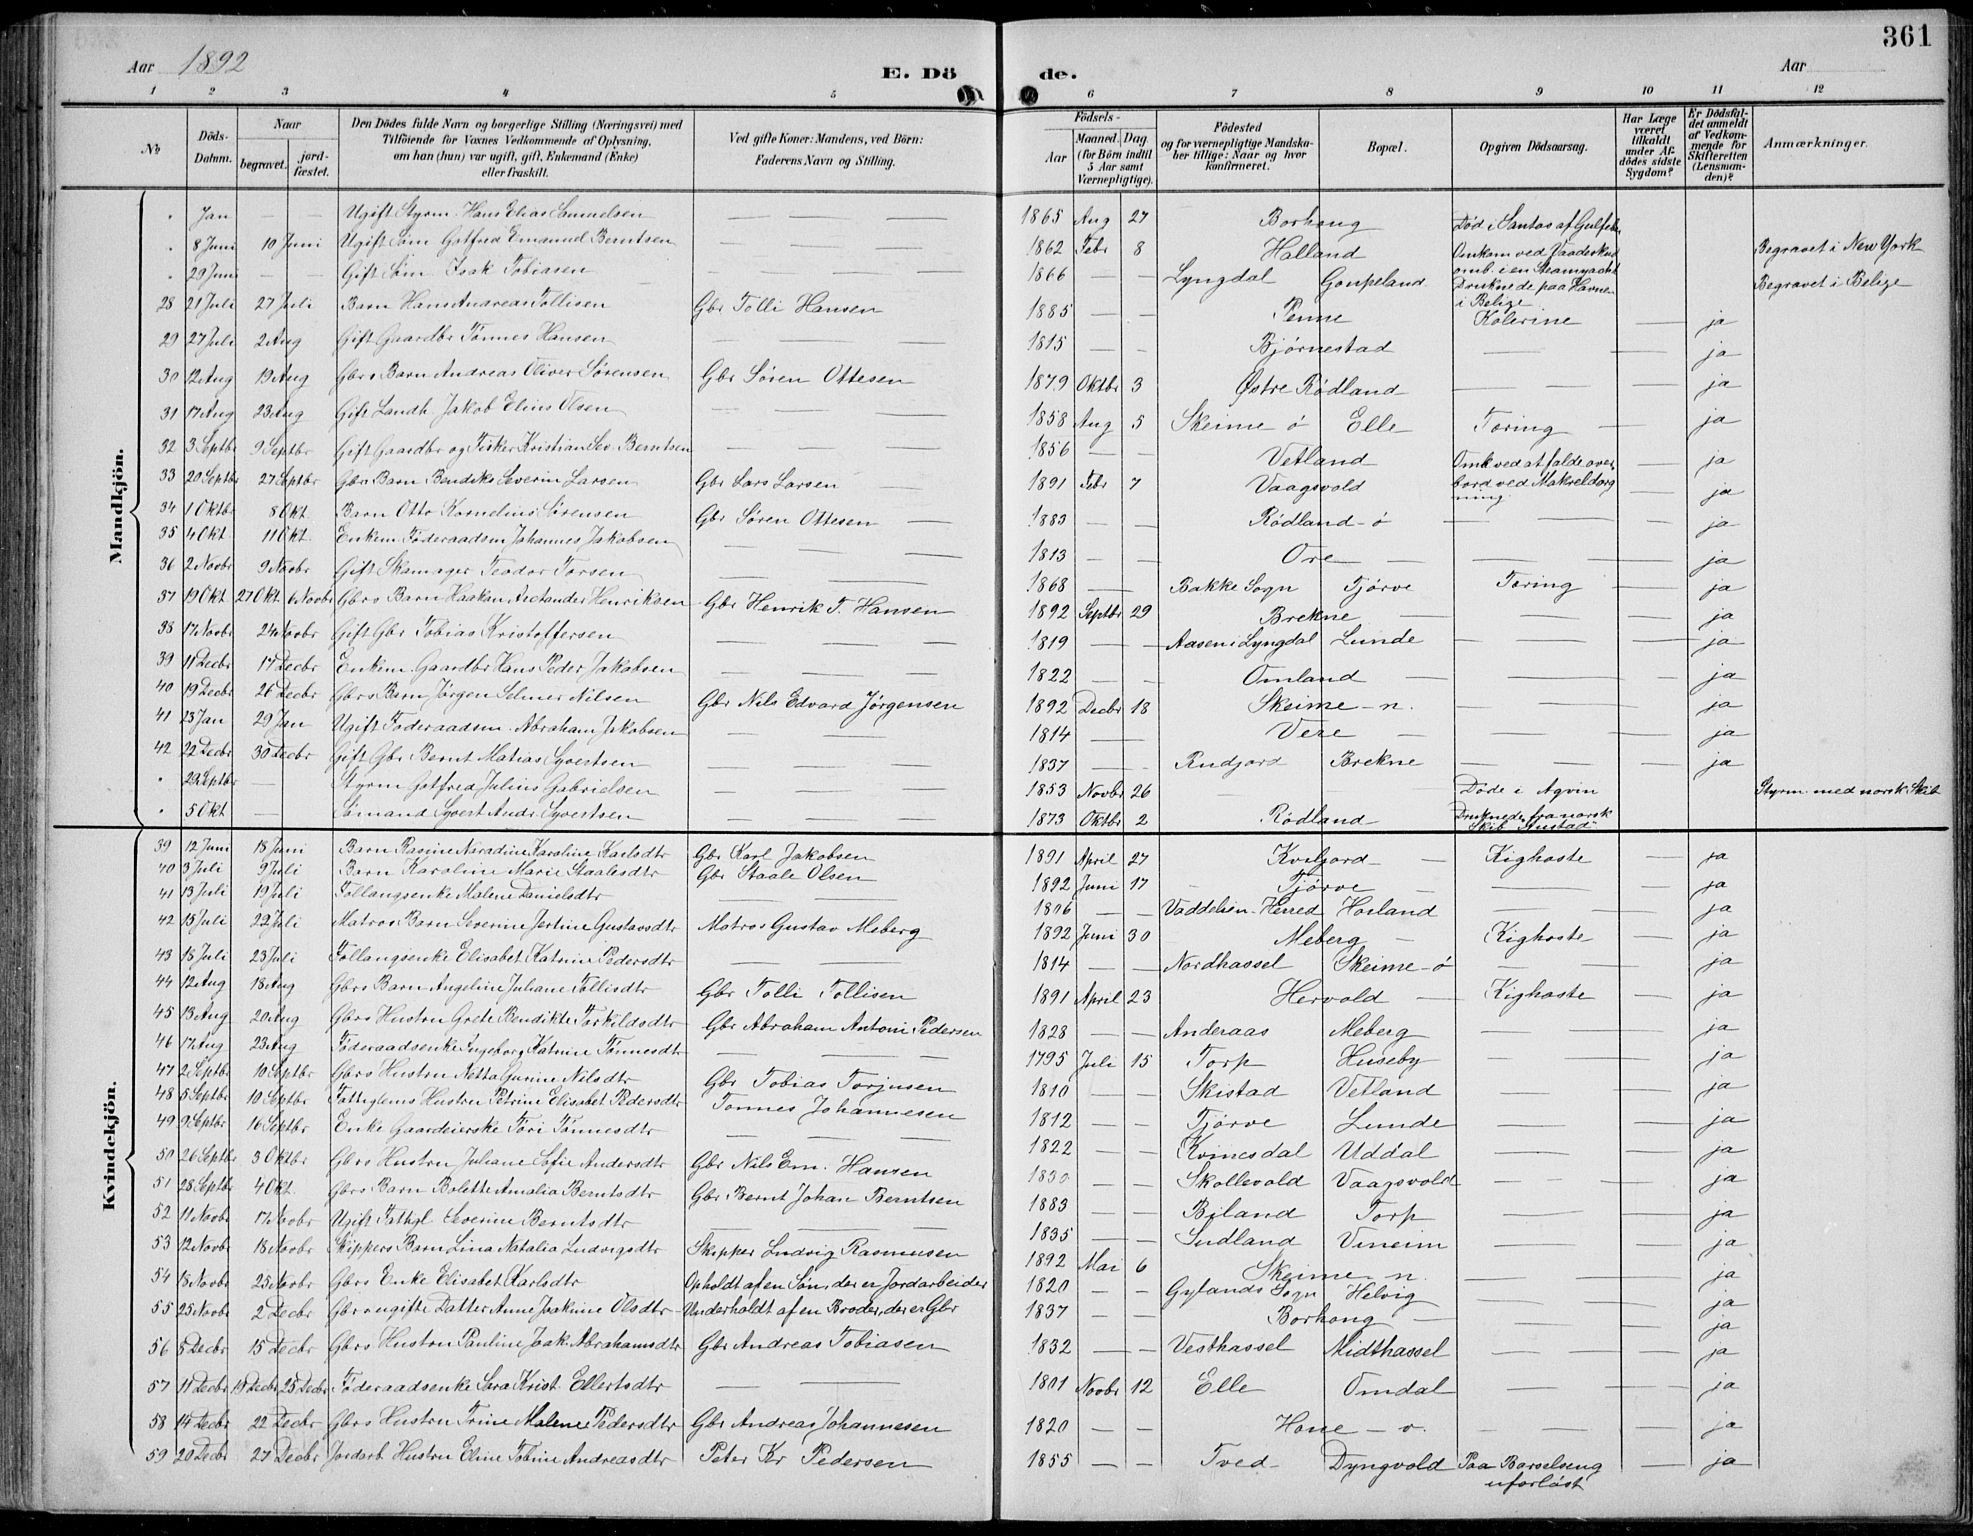 361
Aar 1892 E. Dö de. Aar
1 2 3 4 5 6 7 8 9 10 11 12
№ Döds-Datum. Naar begravet. jordfæstet. Den Dödes fulde Navn og borgerlige Stilling (Næringsvei) med Tilföiende for Voxnes Vedkommende af Oplysning, om han (hun) var ugift, gift, Enkemand (Enke) eller fraskilt. Ved gifte Koner: Mandens, ved Börn: Faderens Navn og Stilling. Födsels- Aar Maaned. Dag (for Börn indtil 5 Aar samt Værnepligtige). Födested og for værnepligtige Mandskaber tillige: Naar og hvor konfirmeret. Bopæl. Opgiven Dödsaarsag. Har Læge været tilkaldt under Afdödes sidste Sygdom? Er Dödsfaldet anmeldt af Vedkommende for Skifteretten (Lensmanden)? Anmærkninger.
Mandkjön.
" Jan — — Ugift Styrm. Hans Elias Samuelsen — — — 1865 Aug 27 Borhaug Död i Santos af Gulfeber
" 8 Juni 10 Juni Ugift Söm Gotfred Emanuel Berntsen — — — 1862 Febr 8 Halland Omkom ved Vaadeskud omb. i en Steamyacht Begravet i New York
" 29 Juni — — Gift Söm Isak Tobiasen — — — 1866 — — Lyngdal Gaupeland Druknede paa Havnen i Belize Begravet i Belize
28 21 Juli 27 Juli Barn Hans Andreas Tollisen Gbr Tolli Hansen 1885 — — Penne Kolerine — ja
29 27 Juli 2 Aug Gift Gaardbr Tönnes Hansen — — — 1815 — — Bjørnestad — — ja
30 12 Aug 19 Aug Gbrs Barn Andreas Oliver Sörensen Gbr Søren Ottesen 1879 Oktbr 3 Østre Rødland — — ja
31 17 Aug 23 Aug Gift Landh. Jakob Elius Olsen — — — 1858 Aug 5 Skeime ø Elle Tæring — ja
32 3 Septbr 9 Septbr Gift Gaardbr og Fisker Kristian Sev. Berntsen — — — 1856 — — Vetland Omk ved at falde overbord ved Makreldorgning. — ja
33 20 Septbr 27 Septbr Gbrs Barn Bendiks Severin Larsen Gbr Lars Larsen 1891 Febr 7 Vaagsvold — ja
34 1 Oktbr 8 Okt. Barn Otto Kornelius Sörensen Gbr Søren Ottesen — 1883 — — Rødland - ø — — ja
35 4 Okt. 11 Okt. Enkem. Föderaadsm Johannes Jakobsen — — — 1813 — — Ore — — — ja
36 2 Novbr 9 Novbr Gift Skomager Teodor Torsen — — — 1868 — — Bakke Sogn Tjørve Tæring — ja
37 19 Okt 27 Okt 6 Novbr Gbrs Barn Haakon Arctander Henriksen Gbr Henrik T. Hansen 1892 Septbr 29 Brekne — — — ja
38 17 Novbr 24 Novbr Gift Gbr Tobias Kristoffersen — — — 1819 — — Aasen i Lyngdal Lunde — — ja
39 11 Decbr 17 Decbr Enkem. Gaardbr Hans Peder Jakobsen — — — 1822 — — Omland — — — ja
40 19 Decbr 26 Decbr Gbrs Barn Jörgen Selmer Nilsen Gbr Nils Edvard Jørgensen 1892 Decbr 18 Skeime - n. — — ja
41 23 Jan 29 Jan Ugift Föderaadsm. Abraham Jakobsen — — — 1814 — — Vere — — — ja
42 22 Decbr 30 Decbr Gift Gbr Bernt Matias Syvertsen — — — 1837 — — Rudjord Brekne — — ja
" 29 Septbr — Styrm Gotfred Julius Gabrielsen — — — 1853 Novbr 26 — Døde i Agvin Styrm. med norsk Skib
" 5 Okt — Sömand Syvert Andr Syvertsen — — — 1873 Oktbr 2 Rødland Druknede fra norsk Skib
Kvindekjön.
39 12 Juni 18 Juni Barn Rasine Karoline Karlsdtr Gbr Karl Jakobsen 1891 April 27 Kviljord — Kighoste — ja
40 3 Juli 9 Juli Barn Karoline Marie Staalesdtr Gbr Staale Olsen 1892 Juni 17 - Tjørve - — — ja
41 13 Juli 19 Juli Föllaugsenke Malene Danielsdtr — — — 1806 — — Herred Hosland — — ja
42 15 Juli 22 Juli Matros Barn Severine Jertine Gustavsdtr Matros Gustav Meberg 1892 Juni 30 Meberg - Kighoste — ja
43 18 Juli 23 Juli Föllaugsenke Elisabet Katrine Pedersdtr — — — 1814 — — Nordhassel Skeime - ø — — ja
44 12 Aug 18 Aug Gbrs Barn Angeline Juliane Tollisdtr Gbr Tolli Tollisen 1891 April 23 Hervold — Kighoste — ja
45 13 Aug 20 Aug Gbrs Hustru Grete Bendikte Torkildsdtr Gbr Abraham Antoni Pedersen 1828 — — Anderaas Meberg — — ja
46 17 Aug 23 Aug Föderaadsenke Ingeborg Katrine Tönnesdtr — — — 1795 Juli 15 Torp Huseby — — ja
47 2 Septbr 10 Septbr Gbrs Hustru Netta Gurine Nilsdtr Gbr Tobias Torjusen 1810 — — Skistad Vetland — — ja
48 5 Septbr 10 Septbr Fattiglems Hustru Petrine Elisabet Pedersdtr Tønnes Johannesen 1812 — — Tjørve Lunde — — ja
49 9 Septbr 16 Septbr Enke Gaardeierske Töri Tönnesdtr — — — 1822 — — Kvinesdal Uddal — — ja
50 26 Septbr 3 Oktbr Gbrs Hustru Juliane Sofie Andersdtr Gbr Nils Em. Hansen 1830 — — Skollevold Vaagsvold — — ja
51 28 Septbr 4 Okt. Gbrs Barn Bolette Amalia Berntsdtr Gbr Bernt Johan Berntsen 1883 — — Biland Torp — — ja
52 11 Novbr 17 Novbr Ugift Fattigl Severine Berntsdtr — — — 1835 — — Sudland Vineim — — ja
53 12 Novbr 18 Novbr Skippers Barn Lina Natalia Ludvigsdtr Skipper Ludvig Rasmusen 1892 Mai 6 Skeime n. — — ja
54 18 Novbr 25 Novbr Gbrs Enke Elisabet Karlsdtr Opholdt af en Søn, der er Jordarbeider 1820 — — Gylands Sogn Helvig — — ja
55 25 Novbr 2 Decbr Gbrs ugifte Datter Anne Joakime Olsdtr Underholdt af en Broder, der er Gbr 1837 — — Borhaug — — — ja
56 8 Decbr 15 Decbr Gbrs Hustru Pauline Joak. Abrahamsdtr Gbr Andreas Tobiasen 1832 — — Vesthassel Midthassel — — ja
57 11 Decbr 19 Decbr 25 Decbr Föderaadsenke Sara Krist. Ellertsdtr — — — 1801 Novbr 12 Elle Omdal — — ja
58 14 Decbr 22 Decbr Gbrs Hustru Trine Malene Pedersdtr Gbr Andreas Johannesen 1820 — — Haue - v. - — — ja
59 20 Decbr 27 Decbr Jordarb Hustru Eline Tobine Andreasdtr Peter Kr Pedersen 1855 — — Tved - Dyngvold Paa Barselseng uforløst — ja